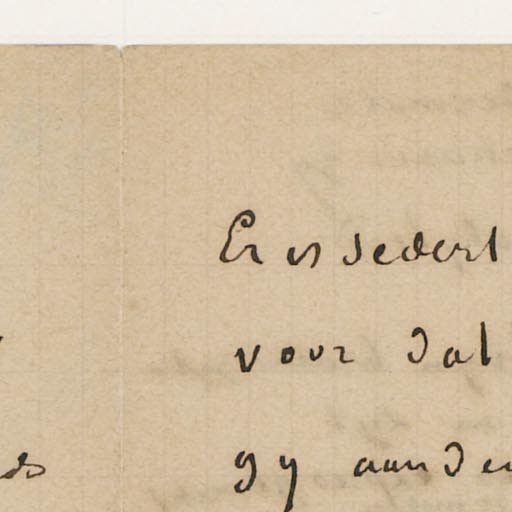 Er is sedert
voor dat
gy aan den